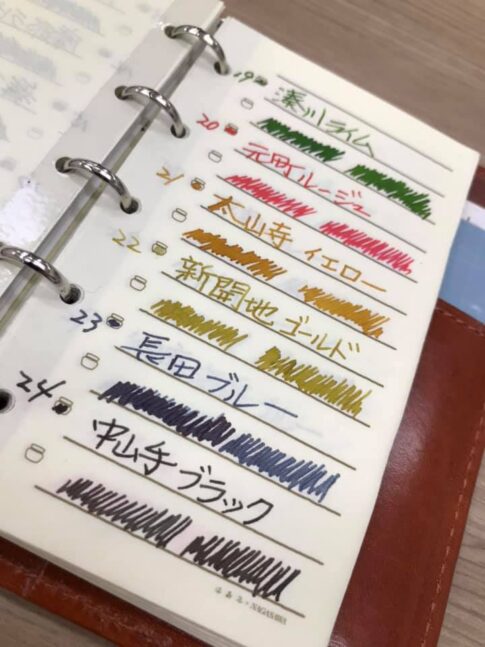 19
湊川ライム
20
元町ルージュ
21
太山寺 イエロー
22
新開地 ゴールド
23
長田ブルー
24
中山手ブラック
NAGASAWA